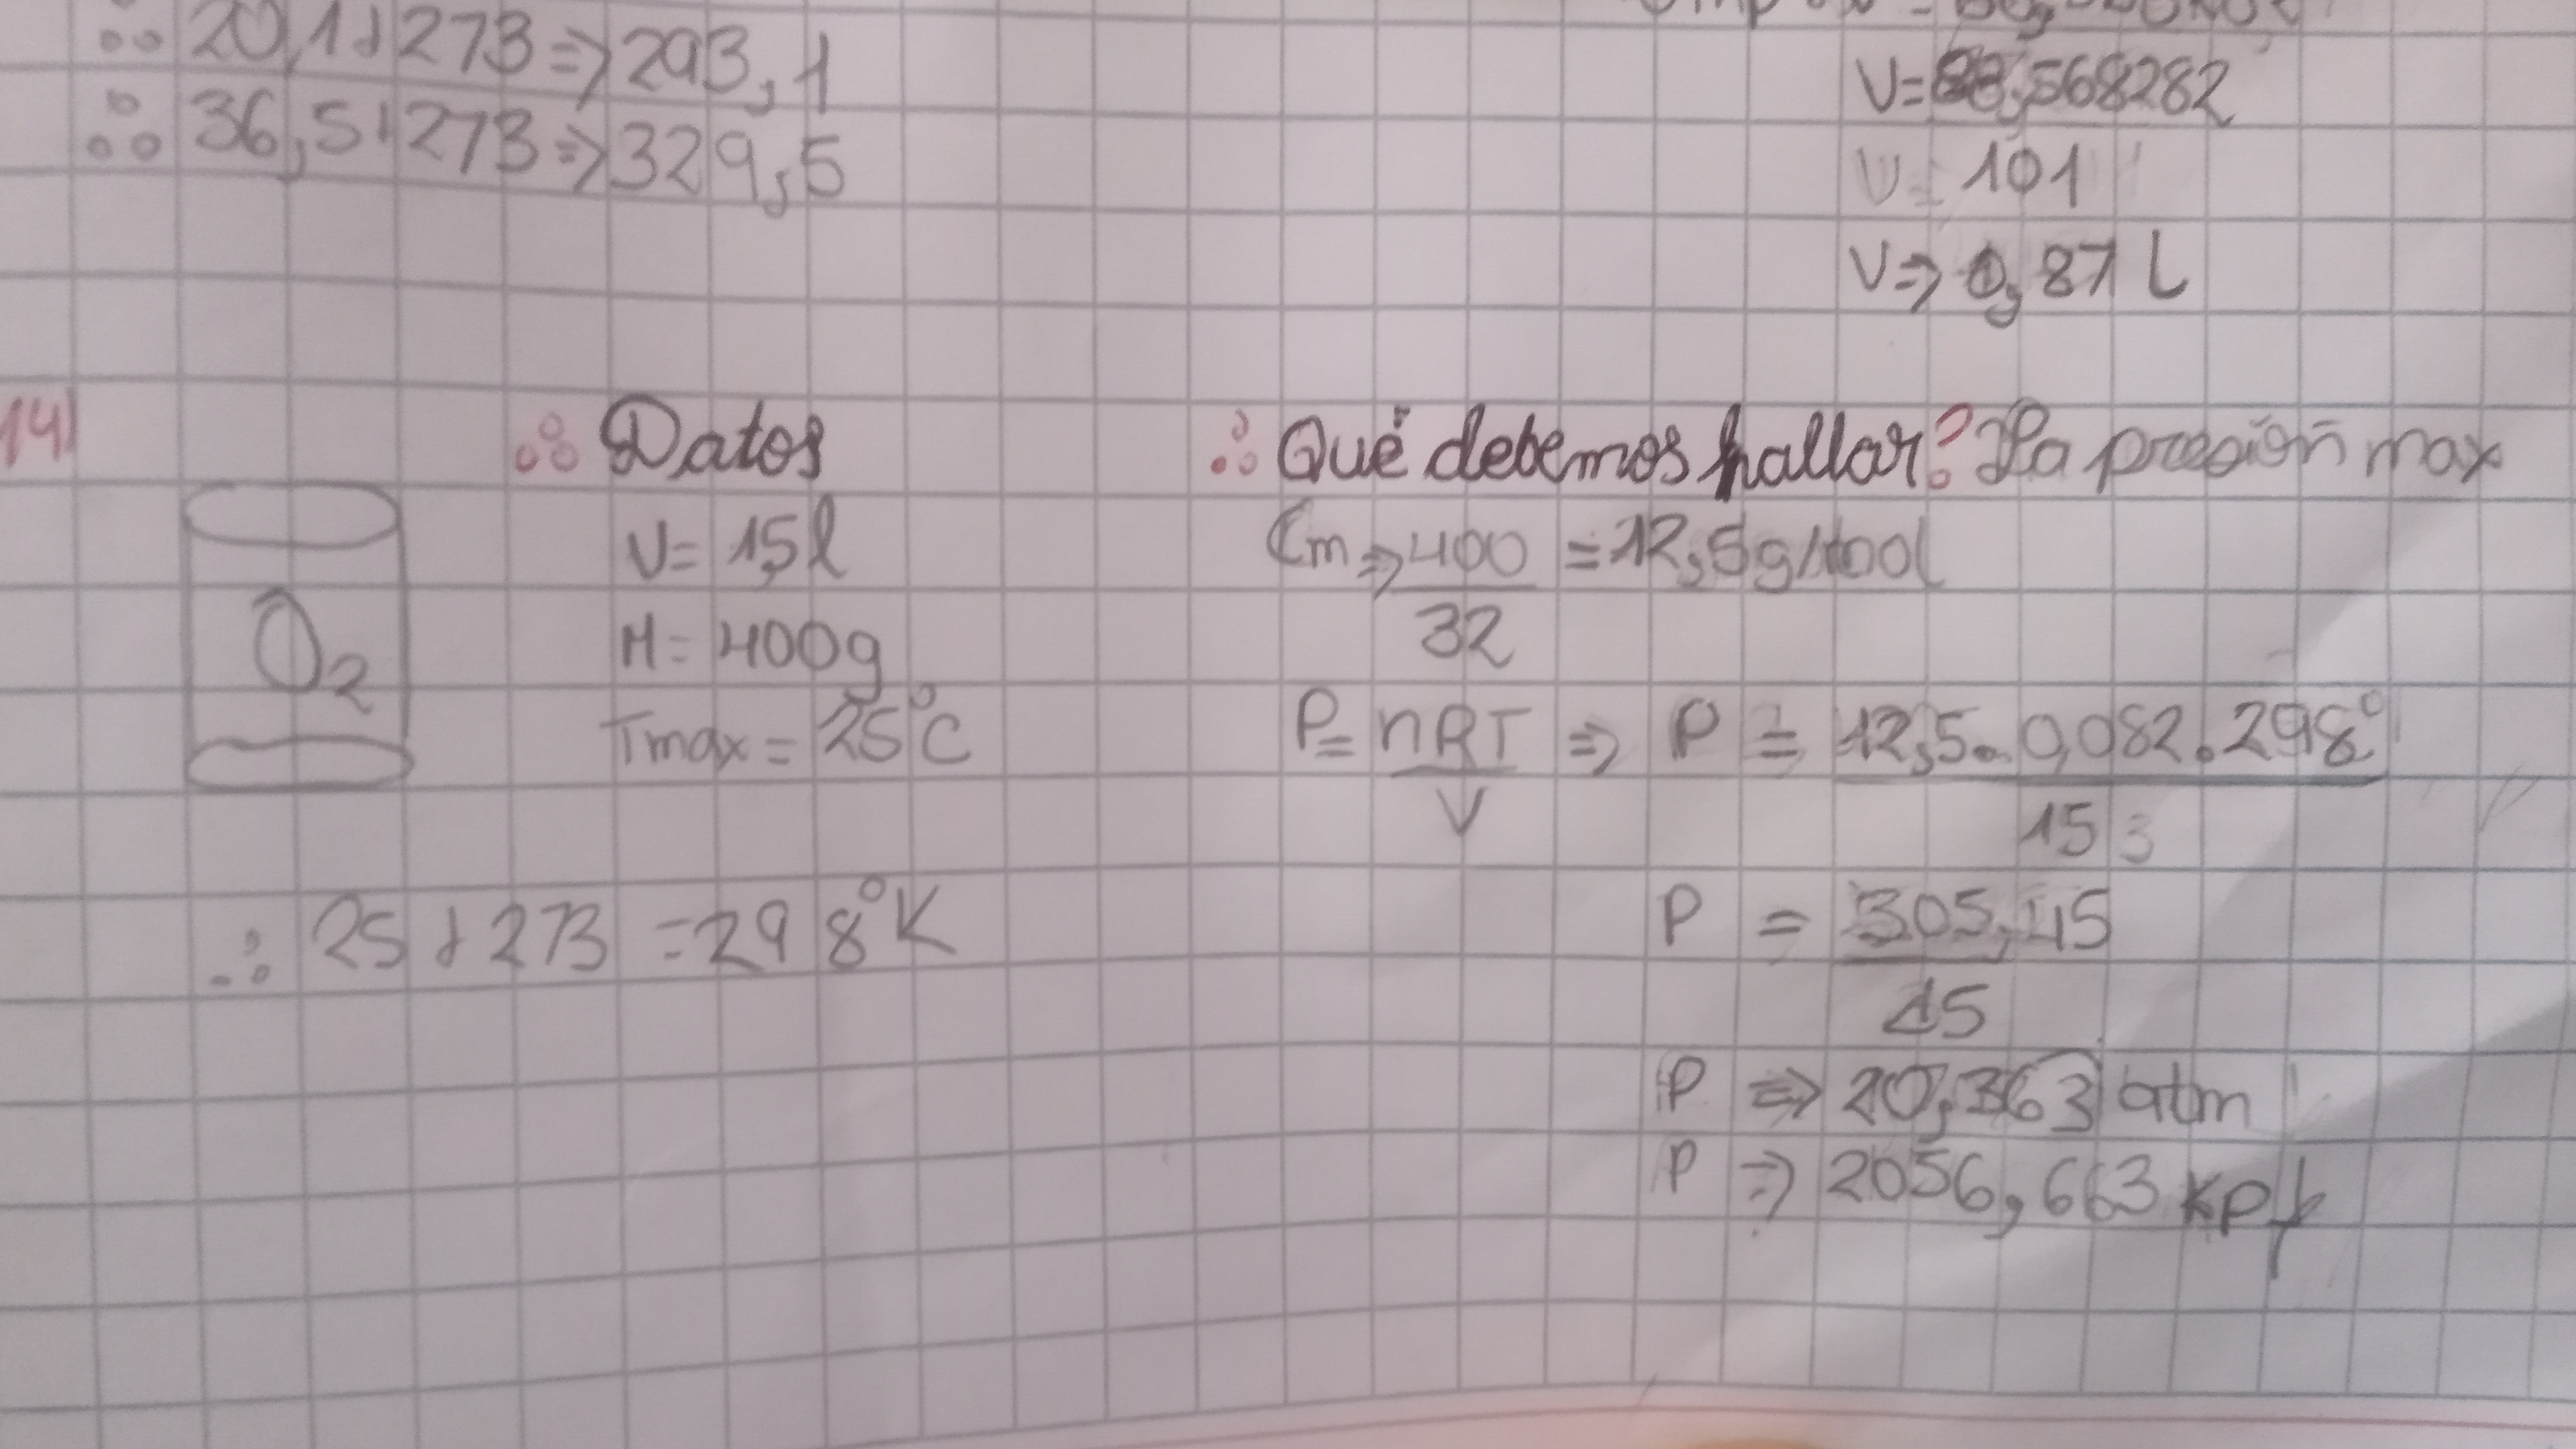 20,1+273⇒293,1
36,5+273⇒329,5
V=88,568282
V= 101
V⇒ 0,87 L
14)
∴ Datos
V= 15l
M= 400g
Tmax= 25°C
O2
∴ 25+273 =298°K
∴ Qué debemos hallar? La presión max
Cm⇒ 400 = 12,5g/mol
32
P= nRT ⇒ P = 12,5. 0,082.298°
V 15
P = 305,45
15
P ⇒ 20,363 atm
P ⇒ 2056,663 Kp